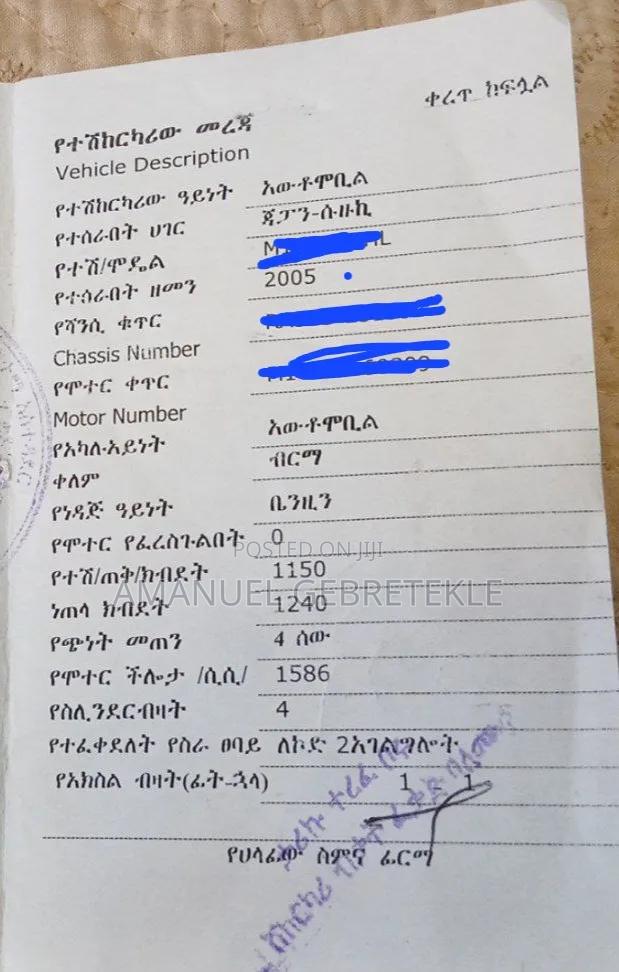 ቀረጥ ከፍሏል
የተሽከርካሪው መረጃ
Vehicle Description
የተሽከርካሪው ዓይነት አውቶሞቢል
የተሰራበት ሀገር ጃፓን-ሱዙኪ
የተሽ/ሞዴል
የተሰራበት ዘመን 2005
የሻንሲ ቁጥር
Chassis Number
የሞተር ቀጥር
Motor Number
የአካሉ-አይነት አውቶሞቢል
ቀለም ብርማ
የነዳጅ ዓይነት ቤንዚን
የሞተር የፈረስጉልበት 0
POSTED ON JIJI
የተሽ/ጠቅ/ክብደት 1150
AMANUEL GEBRETEKLE
ነጠላ ክብደት 1240
የጭነት መጠን 4 ሰው
የሞተር ችሎታ /ሲሲ/ 1586
የስሊንደርብዛት 4
የተፈቀደለት የስራ ፀባይ ለኮድ 2አገልግሎት
የአክስል ብዛት(ፊት-ኋላ) 1 - 1
የሀላፊው ስምና ፊርማ